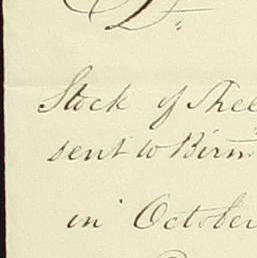 Dr.
Stock of Shel
sent to Birm
in October